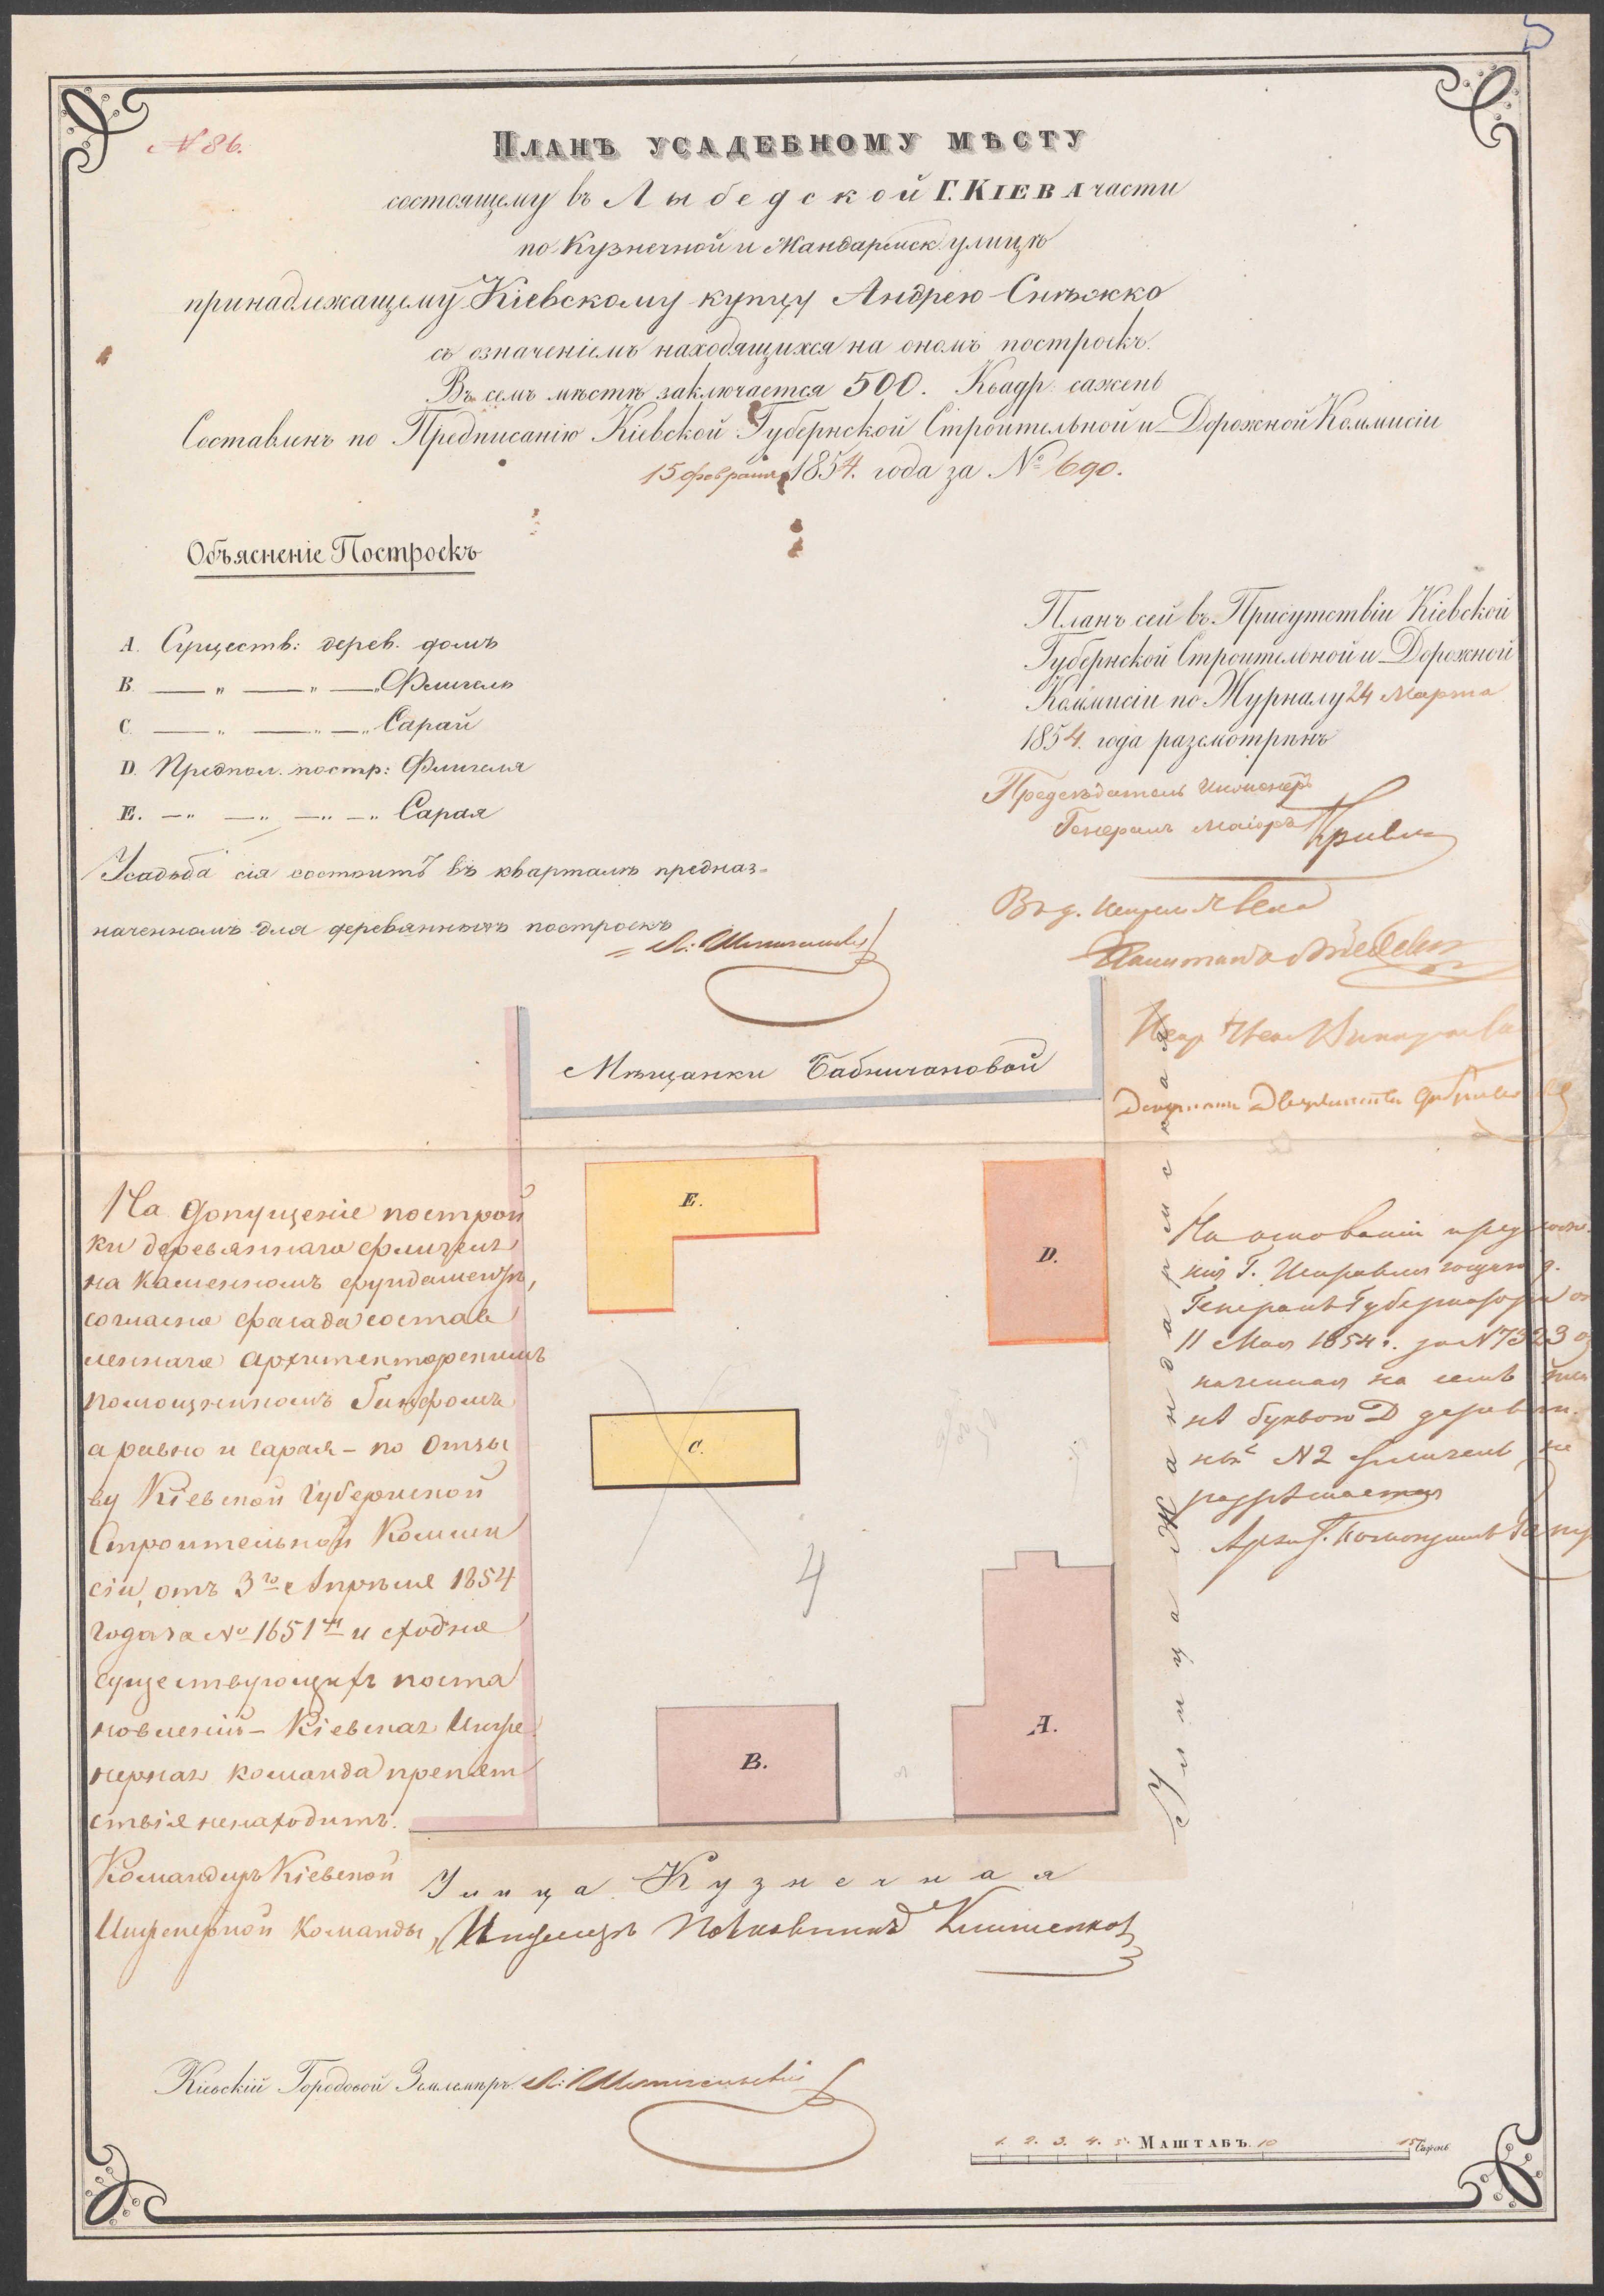 5
N 86.
ПЛАНЪ УСАДЕБНОМУ МѢСТУ
состоящему въ Лыбедской Г. КІЕВА части
по Кузнечной и Жандармск. улицѣ
принадлежащему Кіевскому купцу Андрею Снѣжко
съ означеніемъ находящихся на ономъ построекъ.
Въ семъ мѣстѣ заключается 500. Квадр. сажень
Составленъ по Предписанію Кіевской Губернской Строительной и Дорожной Коммисіи
15 февраля 1854. года за № 690.
Объясненіе Построекъ
A. Существ: дерев. домъ
B. — „ — „ — „ Флигель
C. — „ — „ — „ Сарай
D. Предпол. постр: Флигеля
E. — „ — „ — „ — „ Сарая
Усадьба сія состоитъ въ кварталѣ предназ-
наченномъ для деревянныхъ построекъ
Планъ сей въ Присутствіи Кіевской
Губернской Строительной и Дорожной
Коммисіи по Журналу 24 Марта
1854. года разсмотрѣнъ
Предсѣдатель Инженеръ
Генералъ Маіоръ
Мѣщанки Бабичановой
E.
D.
C.
4
A.
B.
На допущеніе построй
ки деревяннаго флигеля
на каменномъ фундаментѣ,
согласно фасада состав
леннаго Архитекторскимъ
помощникомъ
а равно и сарая – по Отзы
ву Кіевской Губернской
Строительной Комми
сіи, отъ 3го Апрѣля 1854
года за № 1651м и сходно
существующихъ поста
новленій – Кіевская Инже
нерная команда препят
ствія ненаходитъ.
Командиръ Кіевской
Инженерной Команды, Инженеръ Полковникъ
На основаніи предложе
нія Г. Исправляющаго д.
Генералъ Губернатора от
11 Мая 1854 г. за N 7323 оз
наченная на семъ план
нѣ буквою D деревян.
ный N 2 флигель не
разрѣшается
Архит. Помощникъ
Улица Жандармская
Улица Кузнечная
Кіевскій Городовой Землемѣръ
1. 2. 3. 4. 5. МАШТАБЪ. 10 15 Сажень